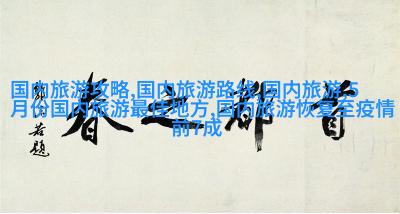 国内旅游攻略,国内旅游路线,国内旅游,5
月份国内旅游最佳地方,国内旅游恢复至疫情
前7成
首都之春
郭沫若题